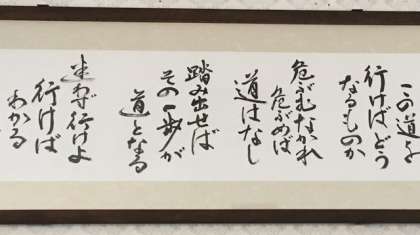 この道を
行けばどう
なるものか
危ぶむなかれ
危ぶめば
道はなし
踏み出せば
その一歩が
道となる
迷わず行けよ
行けば
わかる